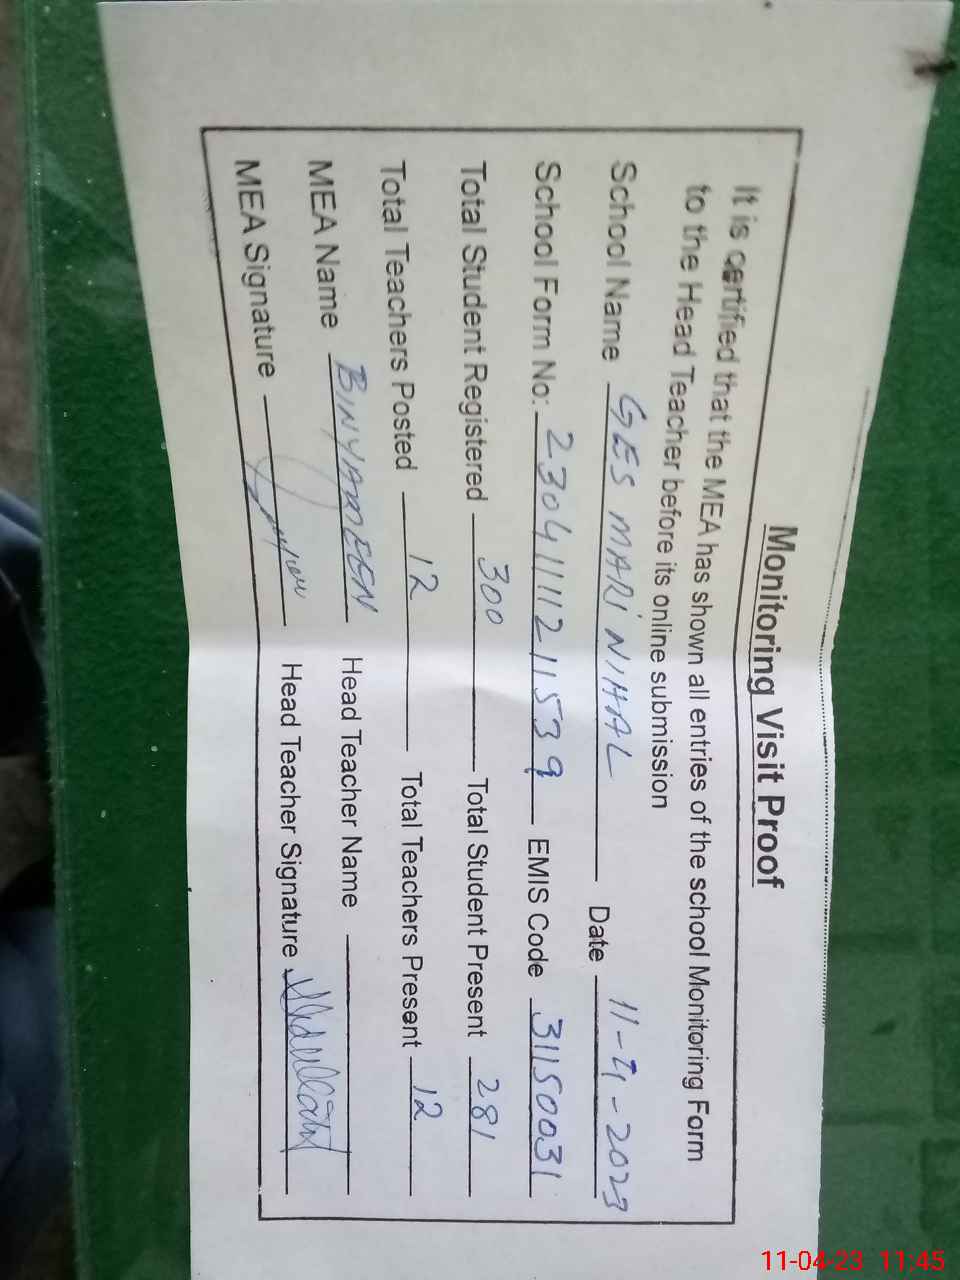 Monitoring Visit Proof
It is certified that the MEA has shown all entries of the school Monitoring Form
to the Head Teacher before its online submission
School Name GES MARI NIHAL Date 11-4-2023
School Form No: 2304111121 1539 EMIS Code 31150031
Total Student Registered 300 Total Student Present 281
Total Teachers Posted 12 Total Teachers Present 12
MEA Name BINYAMEEN Head Teacher Name
MEA Signature Head Teacher Signature
11-04-23 11:45